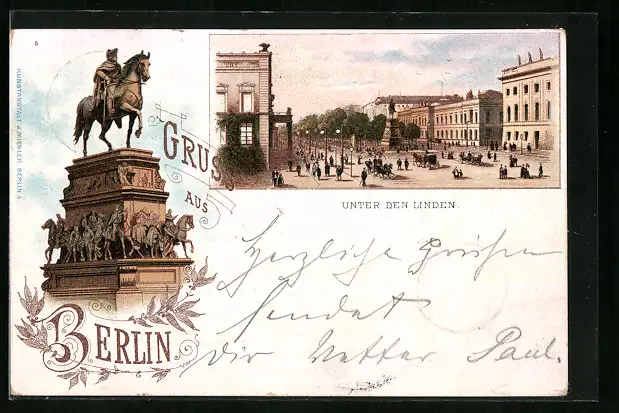 5
KUNSTANSTALT J. MIESLER, BERLIN S.
GRUSS
AUS
BERLIN
UNTER DEN LINDEN.
Herzliche Grüße
sendet
Dir Vetter Paul.